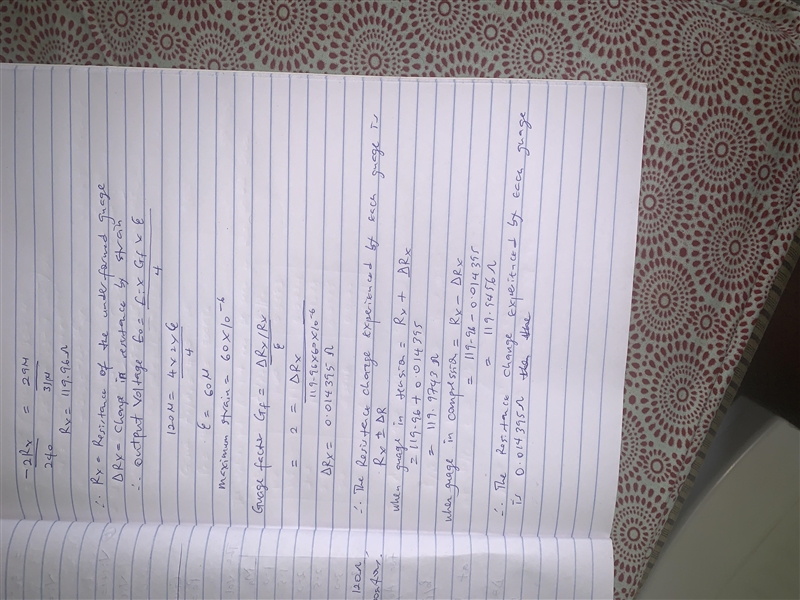 -2Rx = 29M
240 31M
Rx = 119.96Ω
∴ Rx = Resistance of the underformed guage
ΔRx = Change in resistance by strain
∴ output voltage Eo = Ei x Gf x ε
4
120M = 4 x 2 x ε
4
ε = 60M
maximum strain = 60 x 10⁻⁶
Guage factor Gf = ΔRx/Rx
ε
= 2 = ΔRx
119.96x60x10⁻⁶
ΔRx = 0.014395 Ω
∴ The Resistance change experienced by each guage is
Rx ± ΔR
when guage in tension = Rx + ΔRx
= 119.96 + 0.014395
= 119.9743 Ω
when guage in compression = Rx - ΔRx
= 119.96 - 0.014395
= 119.9456 Ω
∴ The Resistance change experienced by each guage
is 0.014395Ω
120Ω